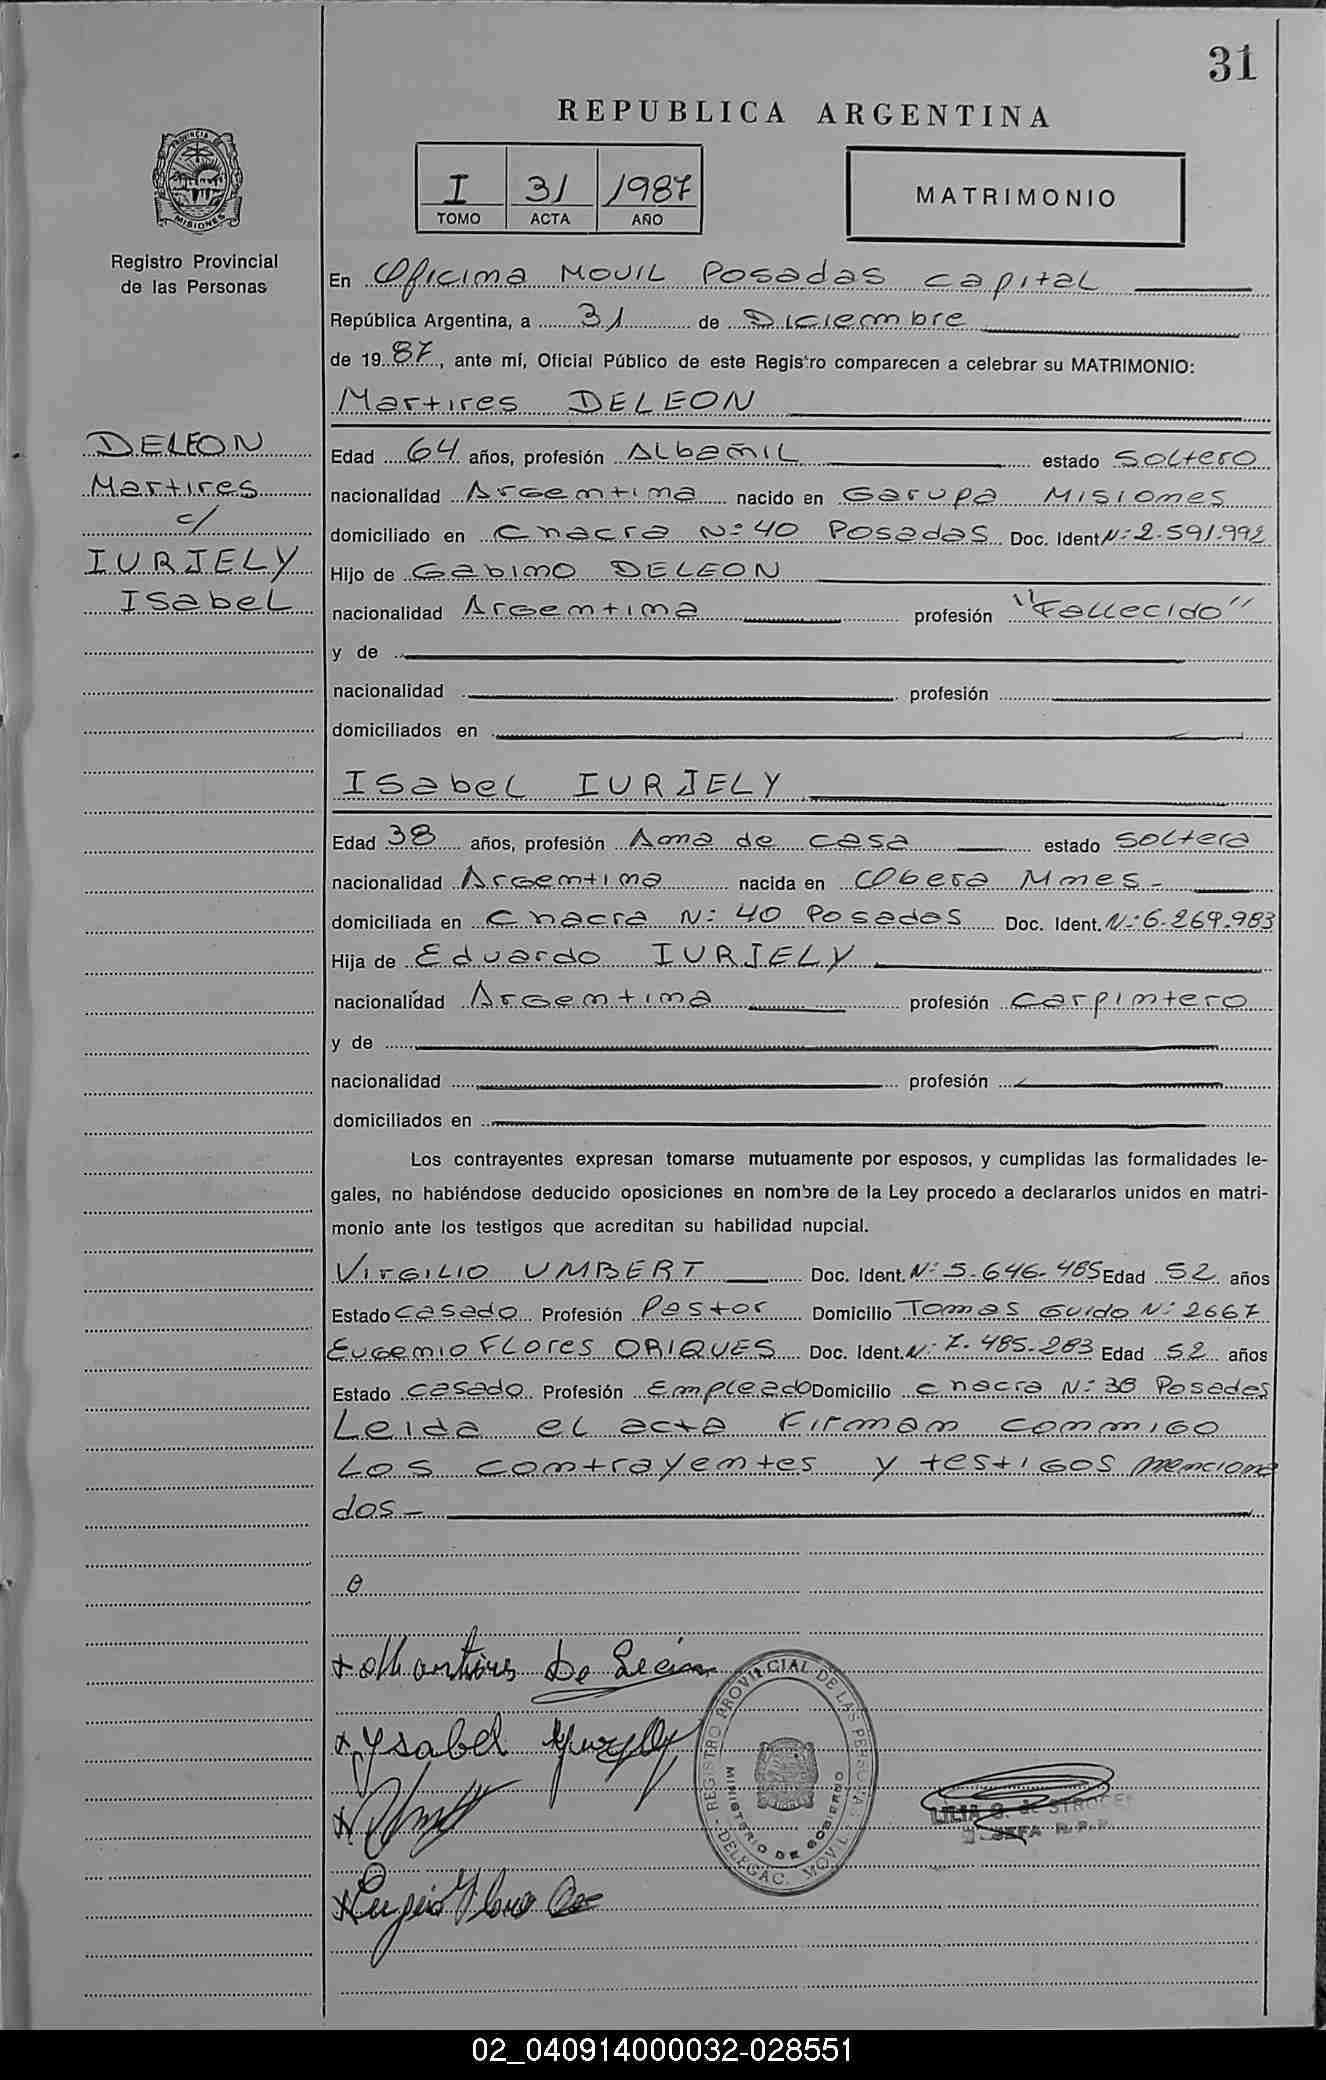 31
REPUBLICA ARGENTINA
I 31 1987
TOMO ACTA AÑO
MATRIMONIO
PROVINCIA DE
MISIONES
Registro Provincial
de las Personas
En Oficina MOVIL Posadas capital
República Argentina, a 31 de Diciembre
de 19 87, ante mí, Oficial Público de este Registro comparecen a celebrar su MATRIMONIO:
Martires DELEON
DELEON
Martires
c/
IURJELY
Isabel
Edad 64 años, profesión Albañil estado soltero
nacionalidad Argentina nacido en Garupa Misiones
domiciliado en Chacra Nº 40 Posadas Doc. Ident Nº 2.591.992
Hijo de Gabino DELEON
nacionalidad Argentina profesión "Fallecido"
y de
nacionalidad profesión
domiciliados en
Isabel IURJELY
Edad 38 años, profesión Ama de casa estado soltera
nacionalidad Argentina nacida en Obera Mnes-
domiciliada en Chacra Nº 40 Posadas Doc. Ident. Nº 6.269.983
Hija de Eduardo IURJELY
nacionalidad Argentina profesión carpintero
y de
nacionalidad profesión
domiciliados en
Los contrayentes expresan tomarse mutuamente por esposos, y cumplidas las formalidades le-
gales, no habiéndose deducido oposiciones en nombre de la Ley procedo a declararlos unidos en matri-
monio ante los testigos que acreditan su habilidad nupcial.
Virgilio UMBERT Doc. Ident. Nº 5.646.485 Edad 52 años
Estado casado Profesión Pastor Domicilio Tomas Guido Nº 2667
Eugenio Flores ORIQUES Doc. Ident. Nº 7.485.283 Edad 52 años
Estado casado Profesión Empleado Domicilio chacra Nº 38 Posadas
Leida el acta firman conmigo
Los contrayentes y testigos menciona
dos-
Martires De León
Ysabel
REGISTRO PROVINCIAL DE LAS PERSONAS
MINISTERIO DE GOBIERNO
DELEGAC. MOVIL
LILIA G. de
JEFA R.P.P.
02_040914000032-028551